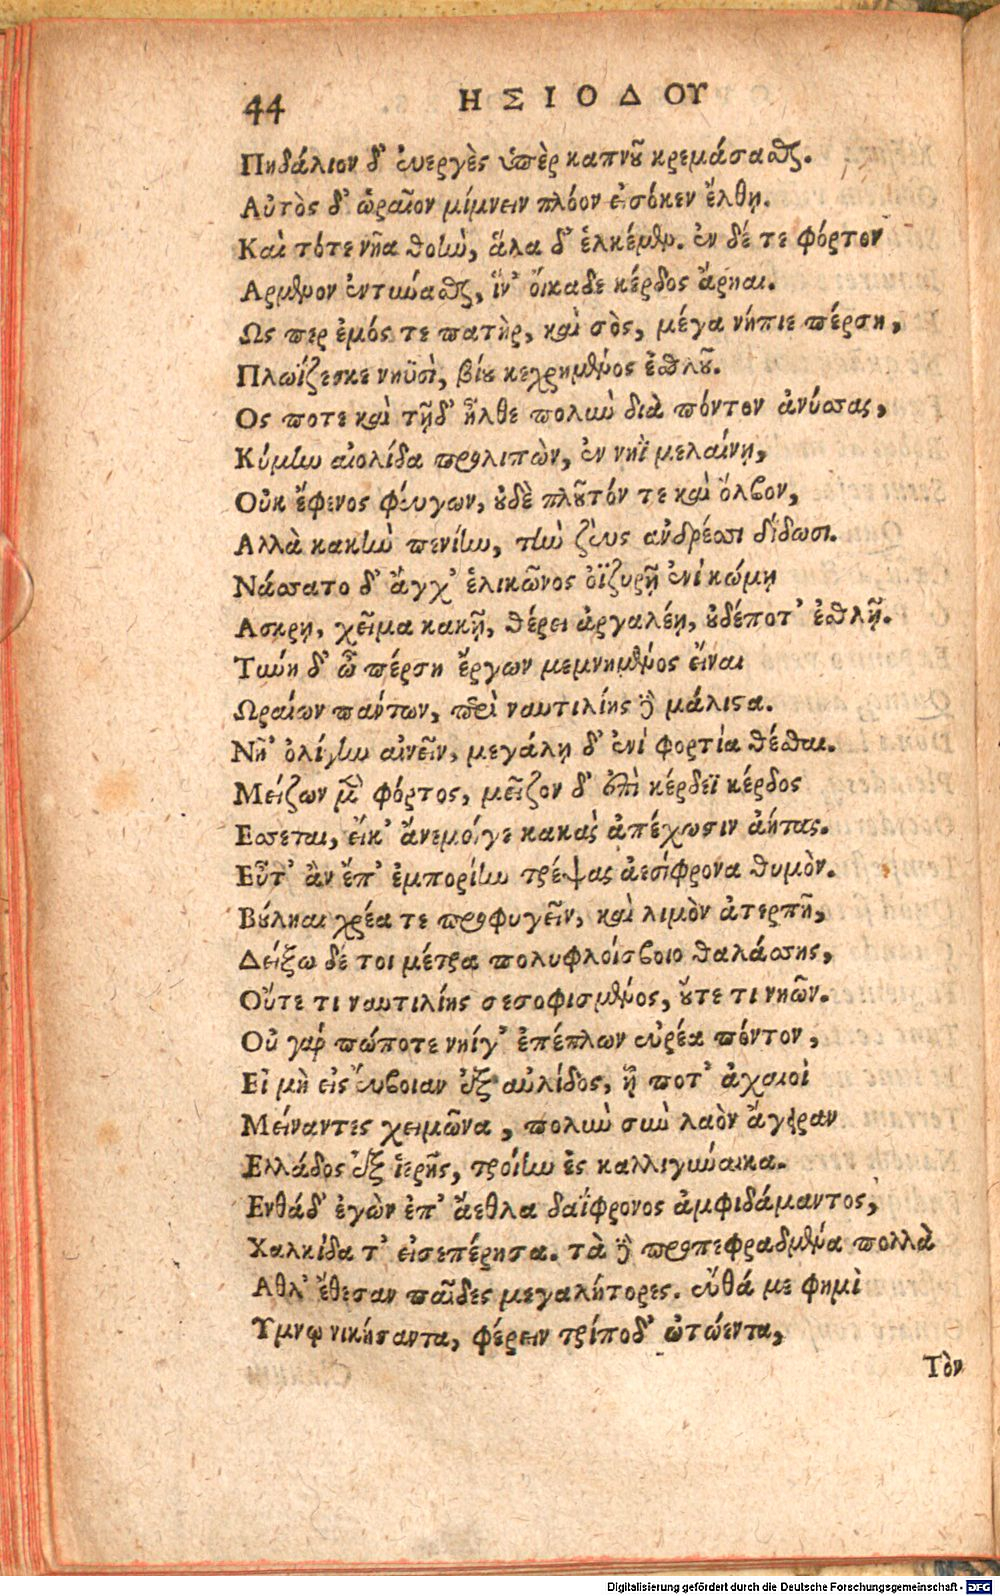 44 ΗΣΙΟΔΟΥ
Πηδάλιον δ' ἐυεργὲς ὑπὲρ καπνοῦ κρεμάσασθαι.
Αὐτὸς δ' ὡραῖον μίμνειν πλόον εἰσόκεν ἔλθῃ.
Καὶ τότε νῆα θοὴν, ἅλα δ' ἑλκέμεν. ἐν δέ τε φόρτον
Αρμενον ἐντύνασθαι, ἵν' οἴκαδε κέρδος ἄρηαι.
Ως περ ἐμός τε πατὴρ, καὶ σὸς, μέγα νήπιε πέρση,
Πλωΐζεσκε νηϋσὶ, βίου κεχρημένος ἐσθλοῦ.
Ος ποτε καὶ τῇδ' ἦλθε πολὺν διὰ πόντον ἀνύσσας,
Κύμην αἰολίδα προλιπὼν, ἐν νηῒ μελαίνῃ,
Οὐκ ἔφενος φεύγων, οὐδὲ πλοῦτόν τε καὶ ὄλβον,
Αλλὰ κακὴν πενίην, τὴν ζεὺς ἀνδρέσσι δίδωσι.
Νάσσατο δ' ἄγχ' ἑλικῶνος ὀϊζυρῇ ἐνὶ κώμῃ
Ασκρῃ, χεῖμα κακῇ, θέρει ἀργαλέῃ, οὐδέποτ' ἐσθλῇ.
Τύνη δ' ὦ πέρση ἔργων μεμνημένος εἶναι
Ωραίων πάντων, περὶ ναυτιλίης δὲ μάλιστα.
Νῆ' ὀλίγην αἰνεῖν, μεγάλῃ δ' ἐνὶ φορτία θέσθαι.
Μείζων μὲν φόρτος, μεῖζον δ' ἐπὶ κέρδεϊ κέρδος
Εσσεται, εἴκ' ἄνεμοίγε κακὰς ἀπέχωσιν ἀήτας.
Εὖτ' ἂν ἔπ' ἐμπορίην τρέψας ἀεσίφρονα θυμὸν.
Βούληαι χρέα τε προφυγεῖν, καὶ λιμὸν ἀτερπῆ,
Δείξω δέ τοι μέτρα πολυφλοίσβοιο θαλάσσης,
Οὔτε τι ναυτιλίης σεσοφισμένος, οὔτε τι νηῶν.
Οὐ γάρ πώποτε νηίγ' ἐπέπλων εὐρέα πόντον,
Εἰ μὴ εἰς εὔβοιαν ἐξ αὐλίδος, ᾗ ποτ' ἀχαιοὶ
Μείναντες χειμῶνα, πολὺν σὺν λαὸν ἄγειραν
Ελλάδος ἐξ ἱερῆς, τροίην ἐς καλλιγύναικα.
Ενθάδ' ἐγὼν ἐπ' ἄεθλα δαΐφρονος ἀμφιδάμαντος,
Χαλκίδα τ' εἰσεπέρησα. τὰ δὲ προπεφραδμένα πολλὰ
Αθλ' ἔθεσαν παῖδες μεγαλήτορες. ἔνθά με φημὶ
Υμνῳ νικήσαντα, φέρειν τρίποδ' ὠτώεντα,
Τὸν
Digitalisierung gefördert durch die Deutsche Forschungsgemeinschaft - DFG